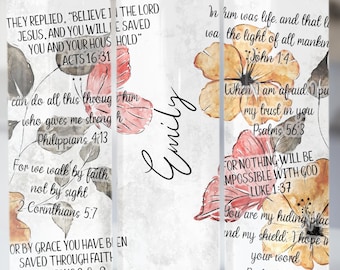 THEY REPLIED, "BELIEVE IN THE LORD
JESUS, AND YOU WILL BE SAVED
YOU AND YOUR HOUSEHOLD"
ACTS 16:31
can do all this through him
who gives me strength
Philippians 4:13
For we walk by faith
not by sight.
2 Corinthians 5:7
FOR BY GRACE YOU HAVE BEEN
SAVED THROUGH FAITH
Emily
him was life, and that life
was the light of all mankind
John 1:4
When I am afraid I put
my trust in you
Psalms 56:3
FOR NOTHING WILL BE
IMPOSSIBLE WITH GOD
LUKE 1:37
You are my hiding place
and my shield. I hope in
your word.